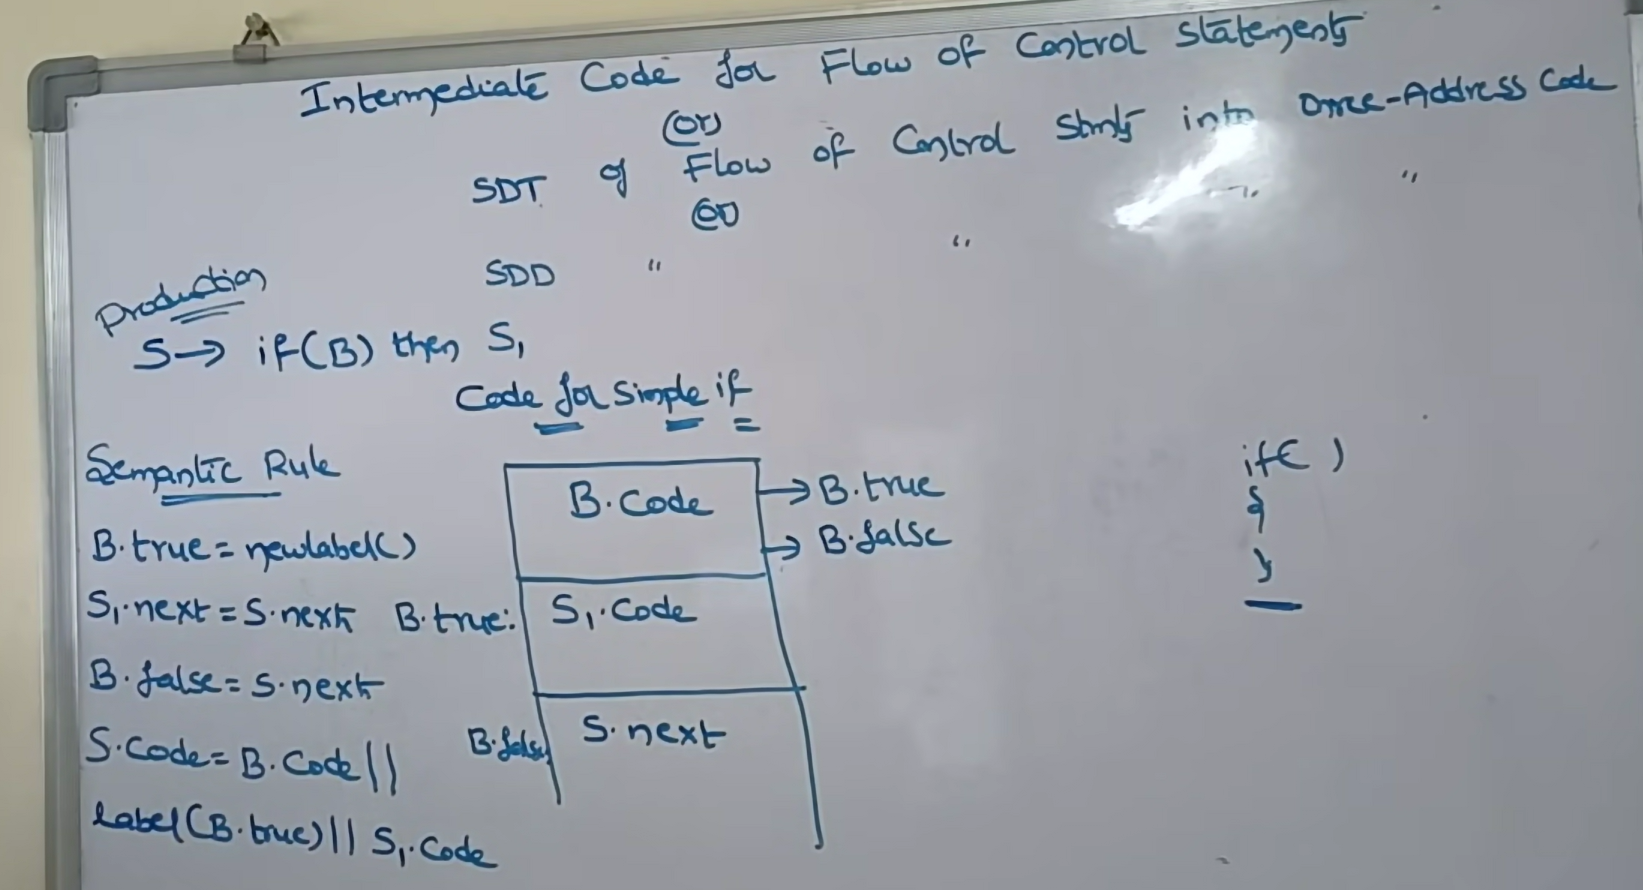 Intermediate Code for Flow of Control Statements
(or)
SDT of Flow of Control Stmts into Three-Address Code
(or)
SDD " " " "
Production
S→ if(B) then S₁
Code for Simple if
Semantic Rule
B.true = newlabel()
S₁.next = S.next
B.false = S.next
S.Code = B.Code ||
Label(B.true) || S₁.Code
B.Code →B.true
→ B.false
B.true: S₁.Code
B.false S.next
if( )
{
}